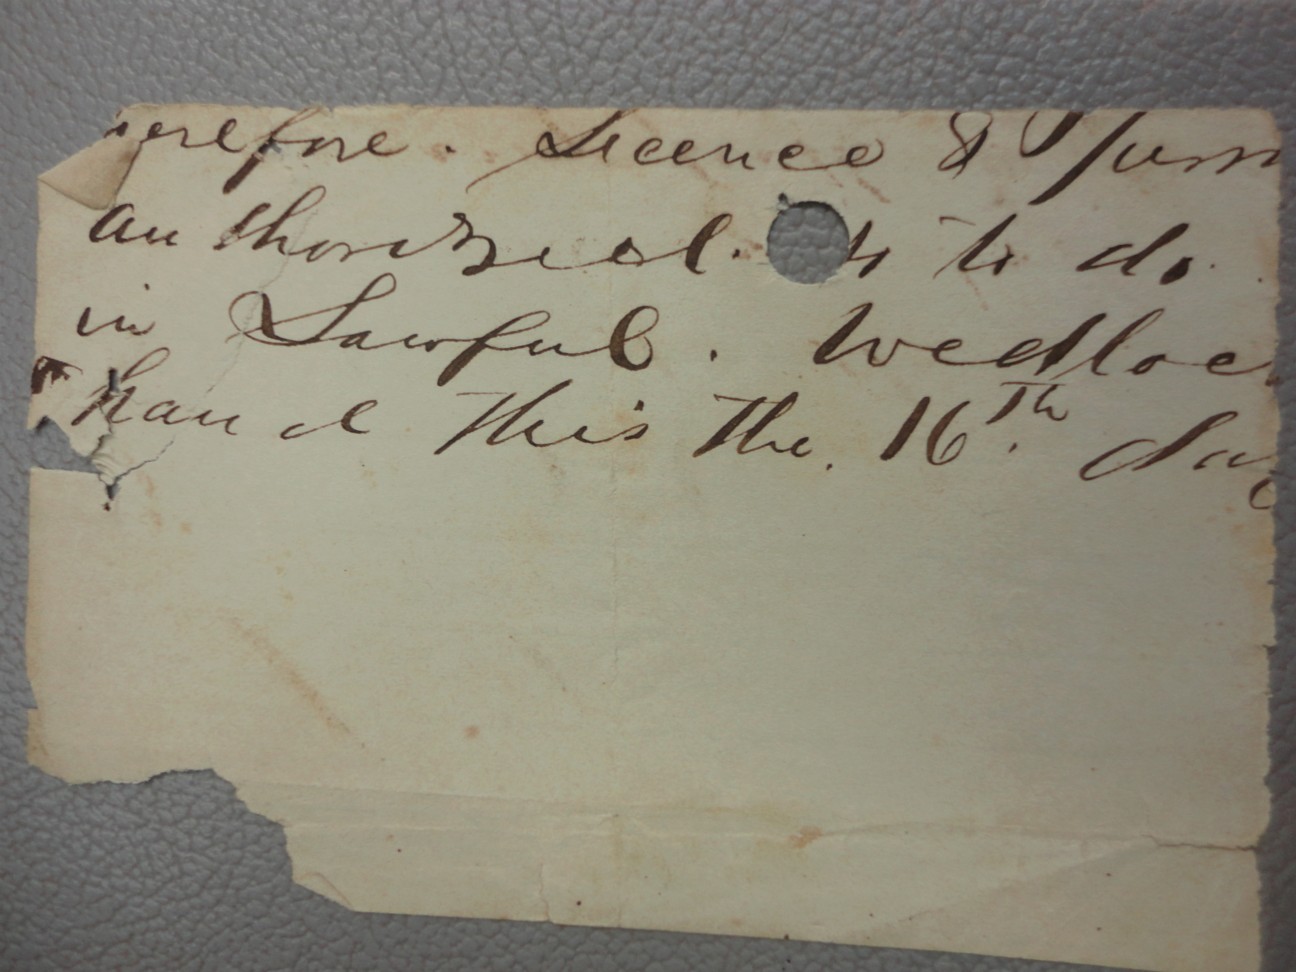 herefore. Licence & Perm
authorized. to do
in Lawful. Wedloc
hand this the. 16th. day